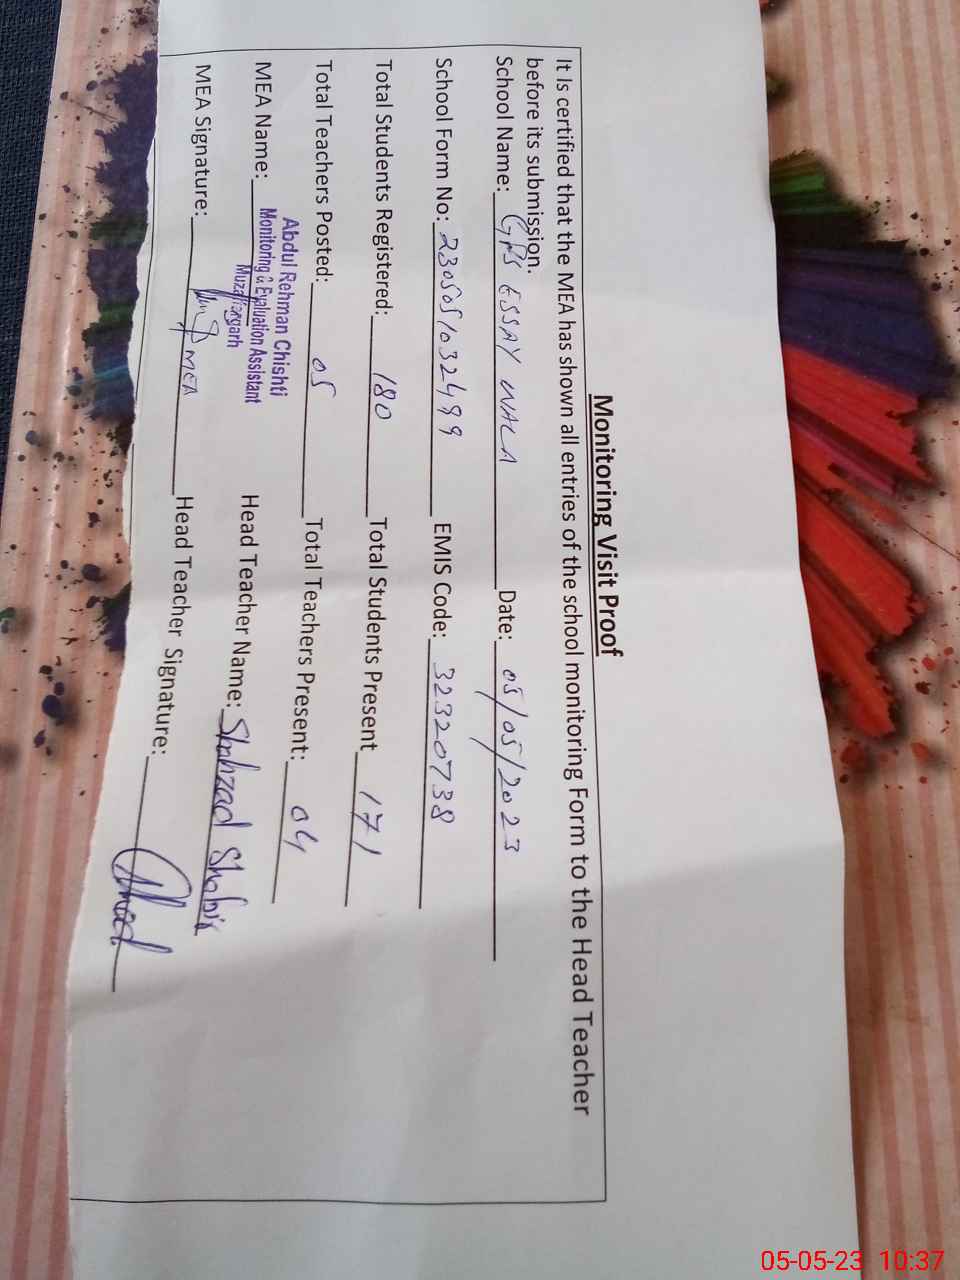 Monitoring Visit Proof
It Is certified that the MEA has shown all entries of the school monitoring Form to the Head Teacher
before its submission.
School Name: GPS ESSAY WALA Date: 05/05/2023
School Form No: 2305051032499 EMIS Code: 32320738
Total Students Registered: 180 Total Students Present 171
Total Teachers Posted: 05 Total Teachers Present: 04
MEA Name: Abdul Rehman Chishti Head Teacher Name: Shahzad Shabir
Monitoring & Evaluation Assistant
Muzaffargarh
MEA Signature: MEA Head Teacher Signature:
05-05-23 10:37